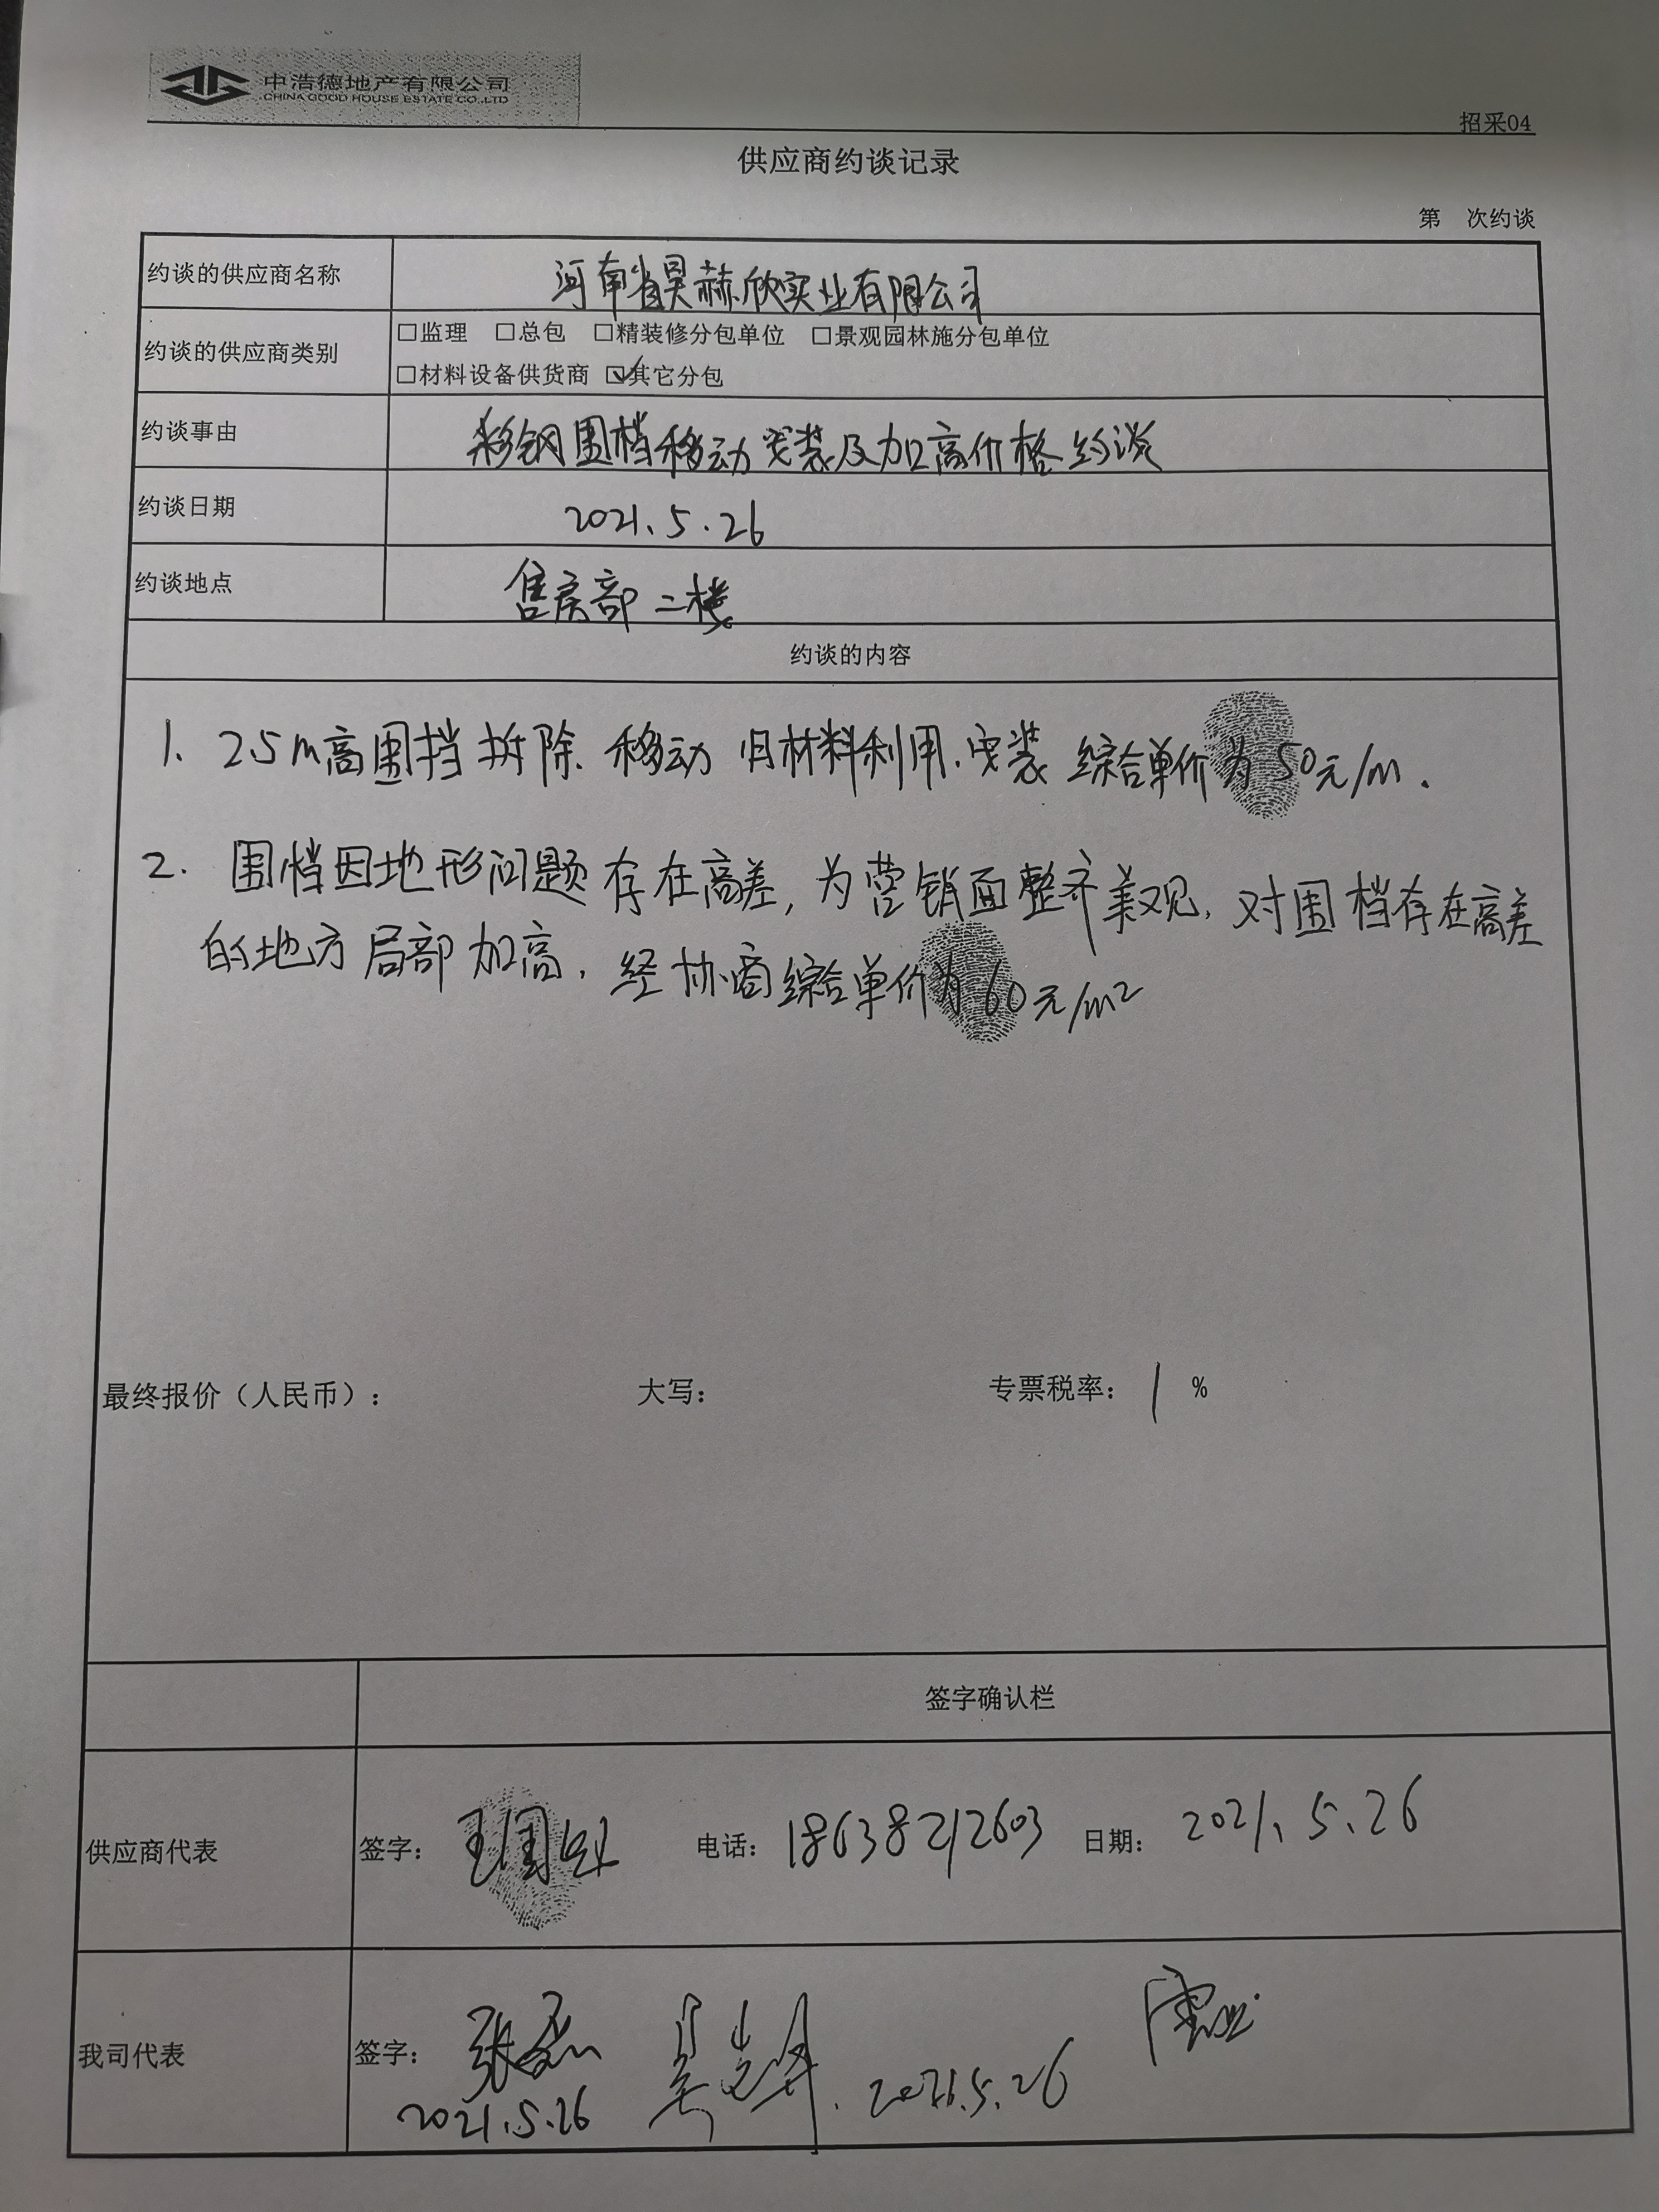 中浩德地产有限公司
CHINA GOOD HOUSE ESTATE CO.,LTD
招采04
供应商约谈记录
第 次约谈
约谈的供应商名称 河南省昊赫欣实业有限公司
约谈的供应商类别 □监理 □总包 □精装修分包单位 □景观园林施分包单位
□材料设备供货商 ☑其它分包
约谈事由 彩钢围档移动安装及加高价格约谈
约谈日期 2021.5.26
约谈地点 售房部二楼
约谈的内容
1. 2.5m高围挡拆除.移动 旧材料利用.安装 综合单价为50元/m.
2. 围档因地形问题存在高差,为营销面整齐美观,对围档存在高差
的地方局部加高,经协商综合单价为60元/m2
最终报价（人民币）： 大写： 专票税率： 1 %
签字确认栏
供应商代表 签字： 电话：18638212603 日期：2021.5.26
我司代表 签字： 张
2021.5.26 2021.5.26